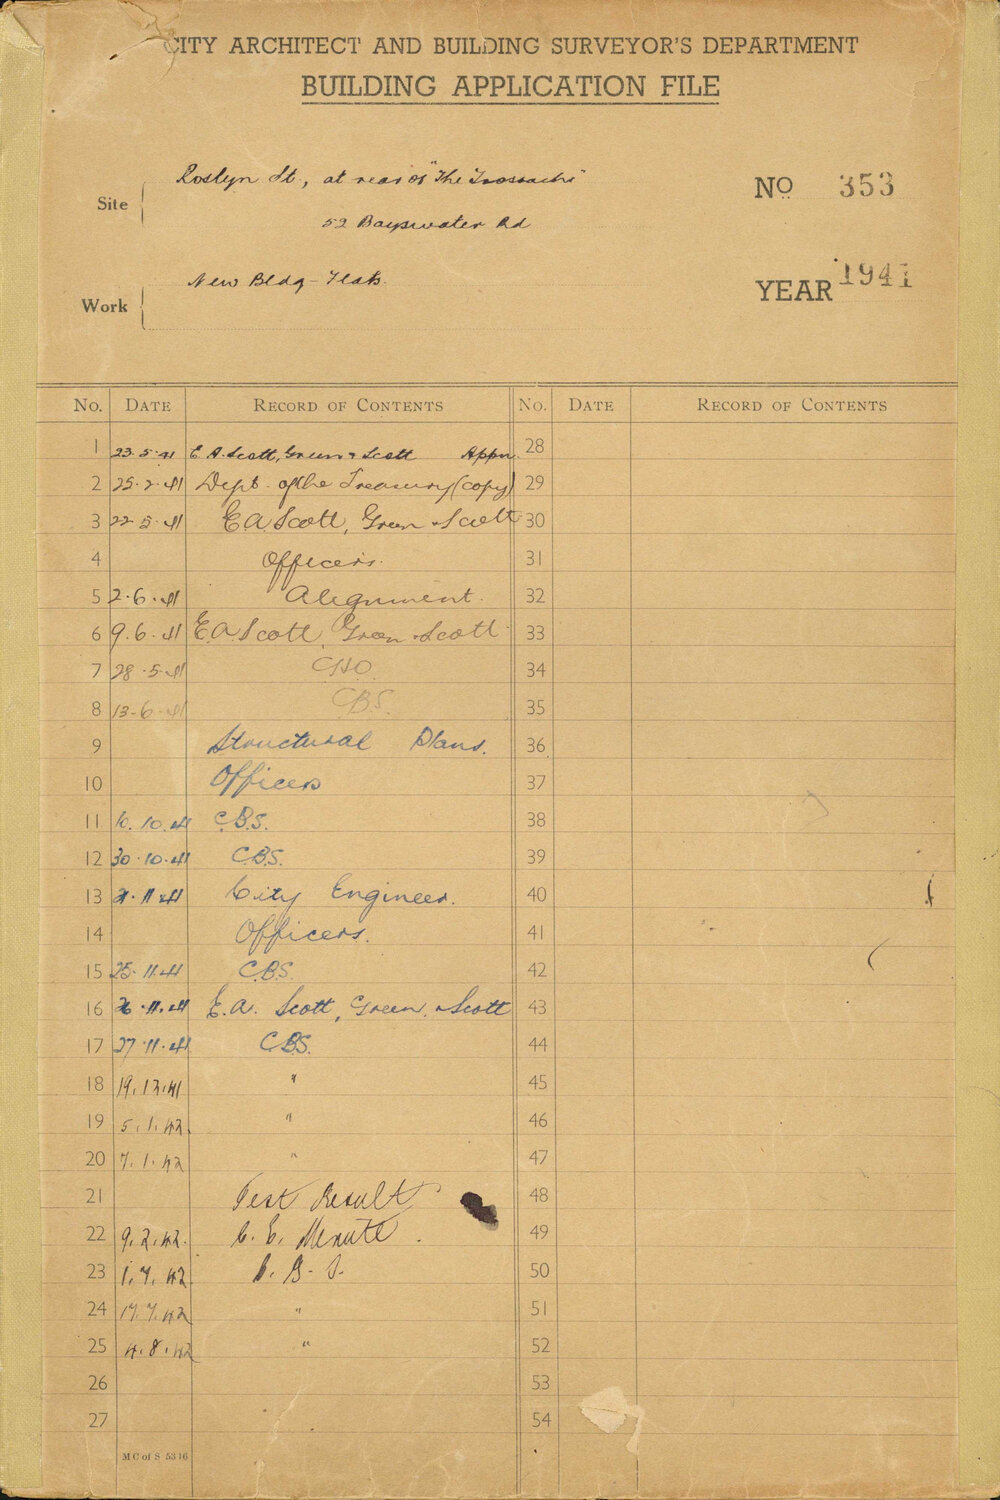 CITY ARCHITECT AND BUILDING SURVEYOR'S DEPARTMENT
BUILDING APPLICATION FILE
Site Roslyn St., at rear of "The Trossachs"
52 Bayswater Rd
No 353
Work New Bldg - Flats.
YEAR 1941
No. DATE RECORD OF CONTENTS No. DATE RECORD OF CONTENTS
1 23.5.41 E. A. Scott, Green & Scott Appn. 28
2 25.2.41 Dept. of the Treasury (copy) 29
3 22.5.41 E A Scott, Green & Scott 30
4 Officers. 31
5 2.6.41 Alignment. 32
6 9.6.41 E A Scott, Green & Scott 33
7 28.5.41 CHO. 34
8 13.6.41 CBS. 35
9 Structural Plans. 36
10 Officers 37
11 10.41 C.B.S. 38
12 30.10.41 C.B.S. 39
13 11.41 City Engineer. 40
14 Officers. 41
15 25.11.41 C.B.S. 42
16 26.11.41 E. A. Scott, Green, & Scott 43
17 27.11.41 C.B.S. 44
18 19.12.41 " 45
19 5.1.42 " 46
20 7.1.42 " 47
21 Test Result 48
22 9.2.42. C. E. Minute. 49
23 1.7.42 C. B. S. 50
24 17.7.42 " 51
25 4.8.42 " 52
26 53
27 54
M C of S 5316